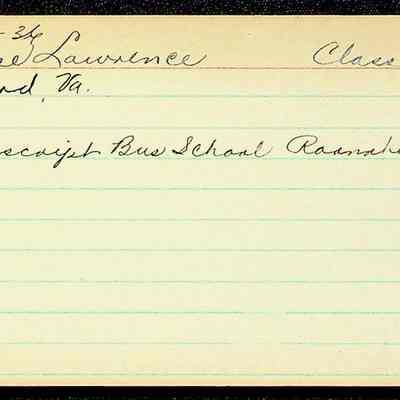 - 36
se Lawrence Class
rd, Va.
script Bus School Roanoke